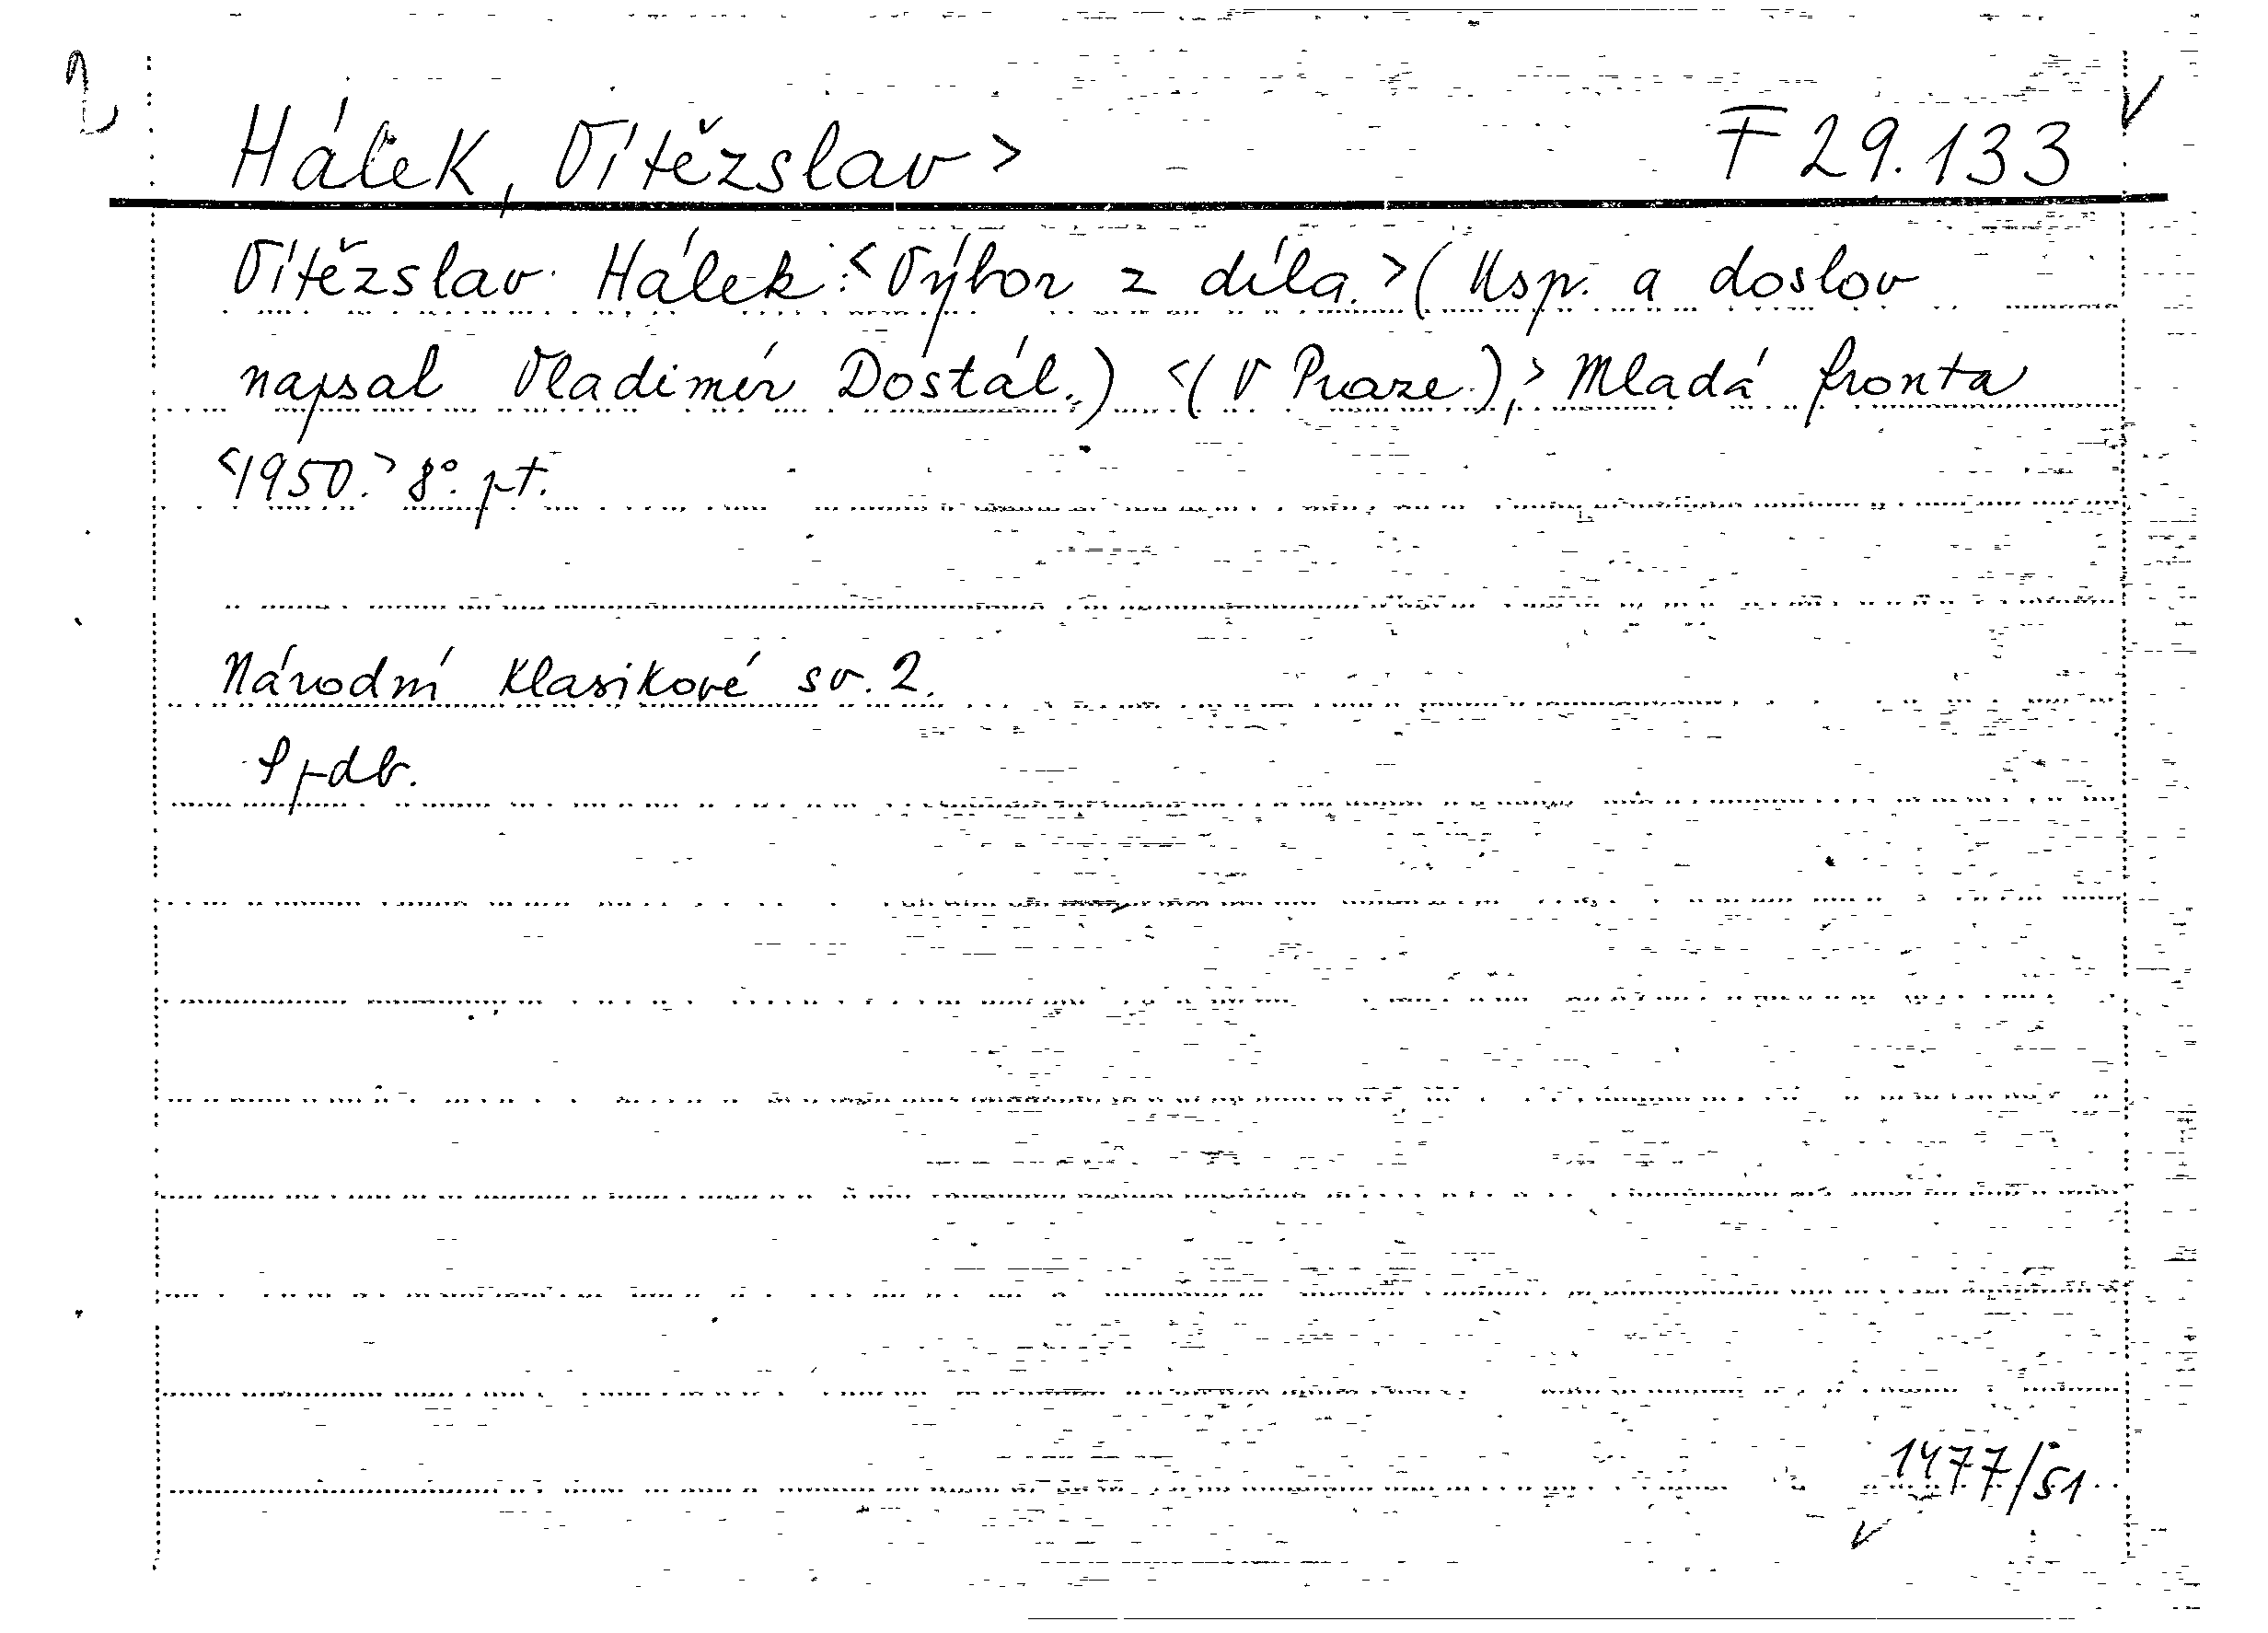 Hálek, Vítězslav > F 29.133
Vítězslav Hálek: <Výbor z díla.> (Usp. a doslov
napsal Vladimír Dostál.) <(V Praze.),> Mladá fronta
<1950.> 8°. pt.
Národní klasikové sv. 2.
1477/51